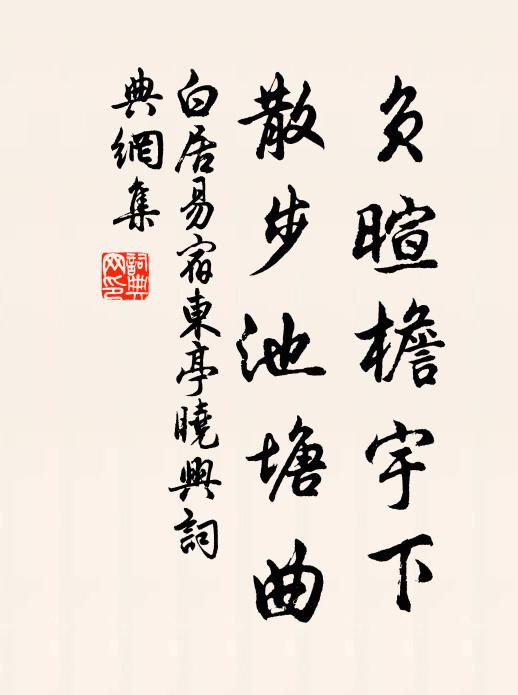 負暄檐宇下
散步池塘曲
白居易宿東亭曉興詞
典網集
詞典网印